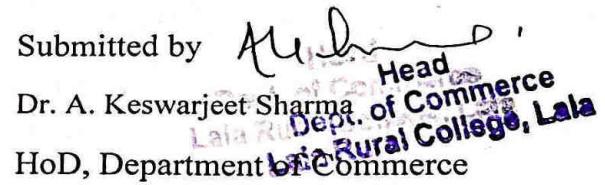 Submitted by
Dr. A. Keswarjeet Sharma
HoD, Department of Commerce
Head
Dept. of Commerce
Lala Rural College, Lala